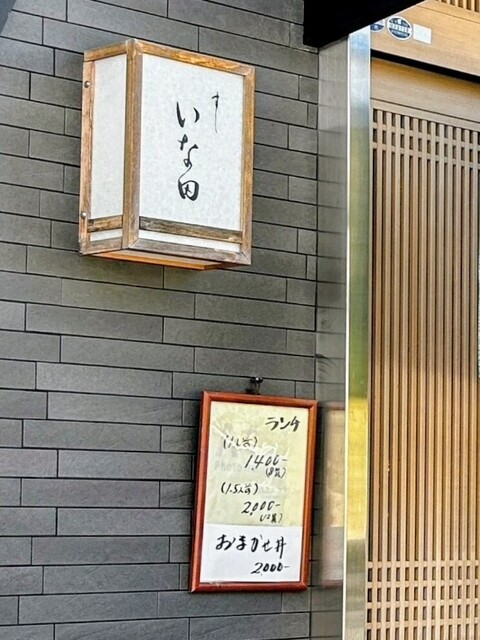 すし
いな田
ランチ
(1人前)
1,400-
(8貫)
(1.5人前)
2,000-
(12貫)
おまかせ丼
2,000-